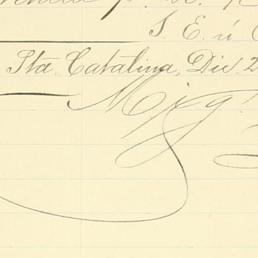 S. E. ú O
Sta. Catalina, Dic 2
Mig.